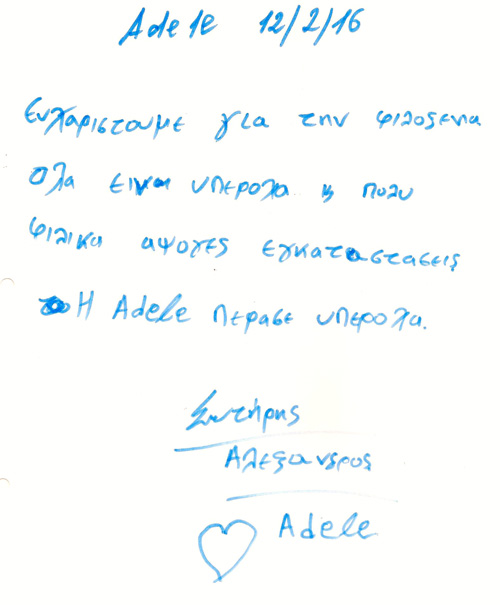 Adele 12/2/16
Ευχαριστουμε για την φιλοξενια
Ολα ειναι υπεροχα κ πολυ
φιλικα αψογες εγκαταστασεις
Η Adele περασε υπεροχα.
Σωτήρης
Αλεξανδρος
Adele